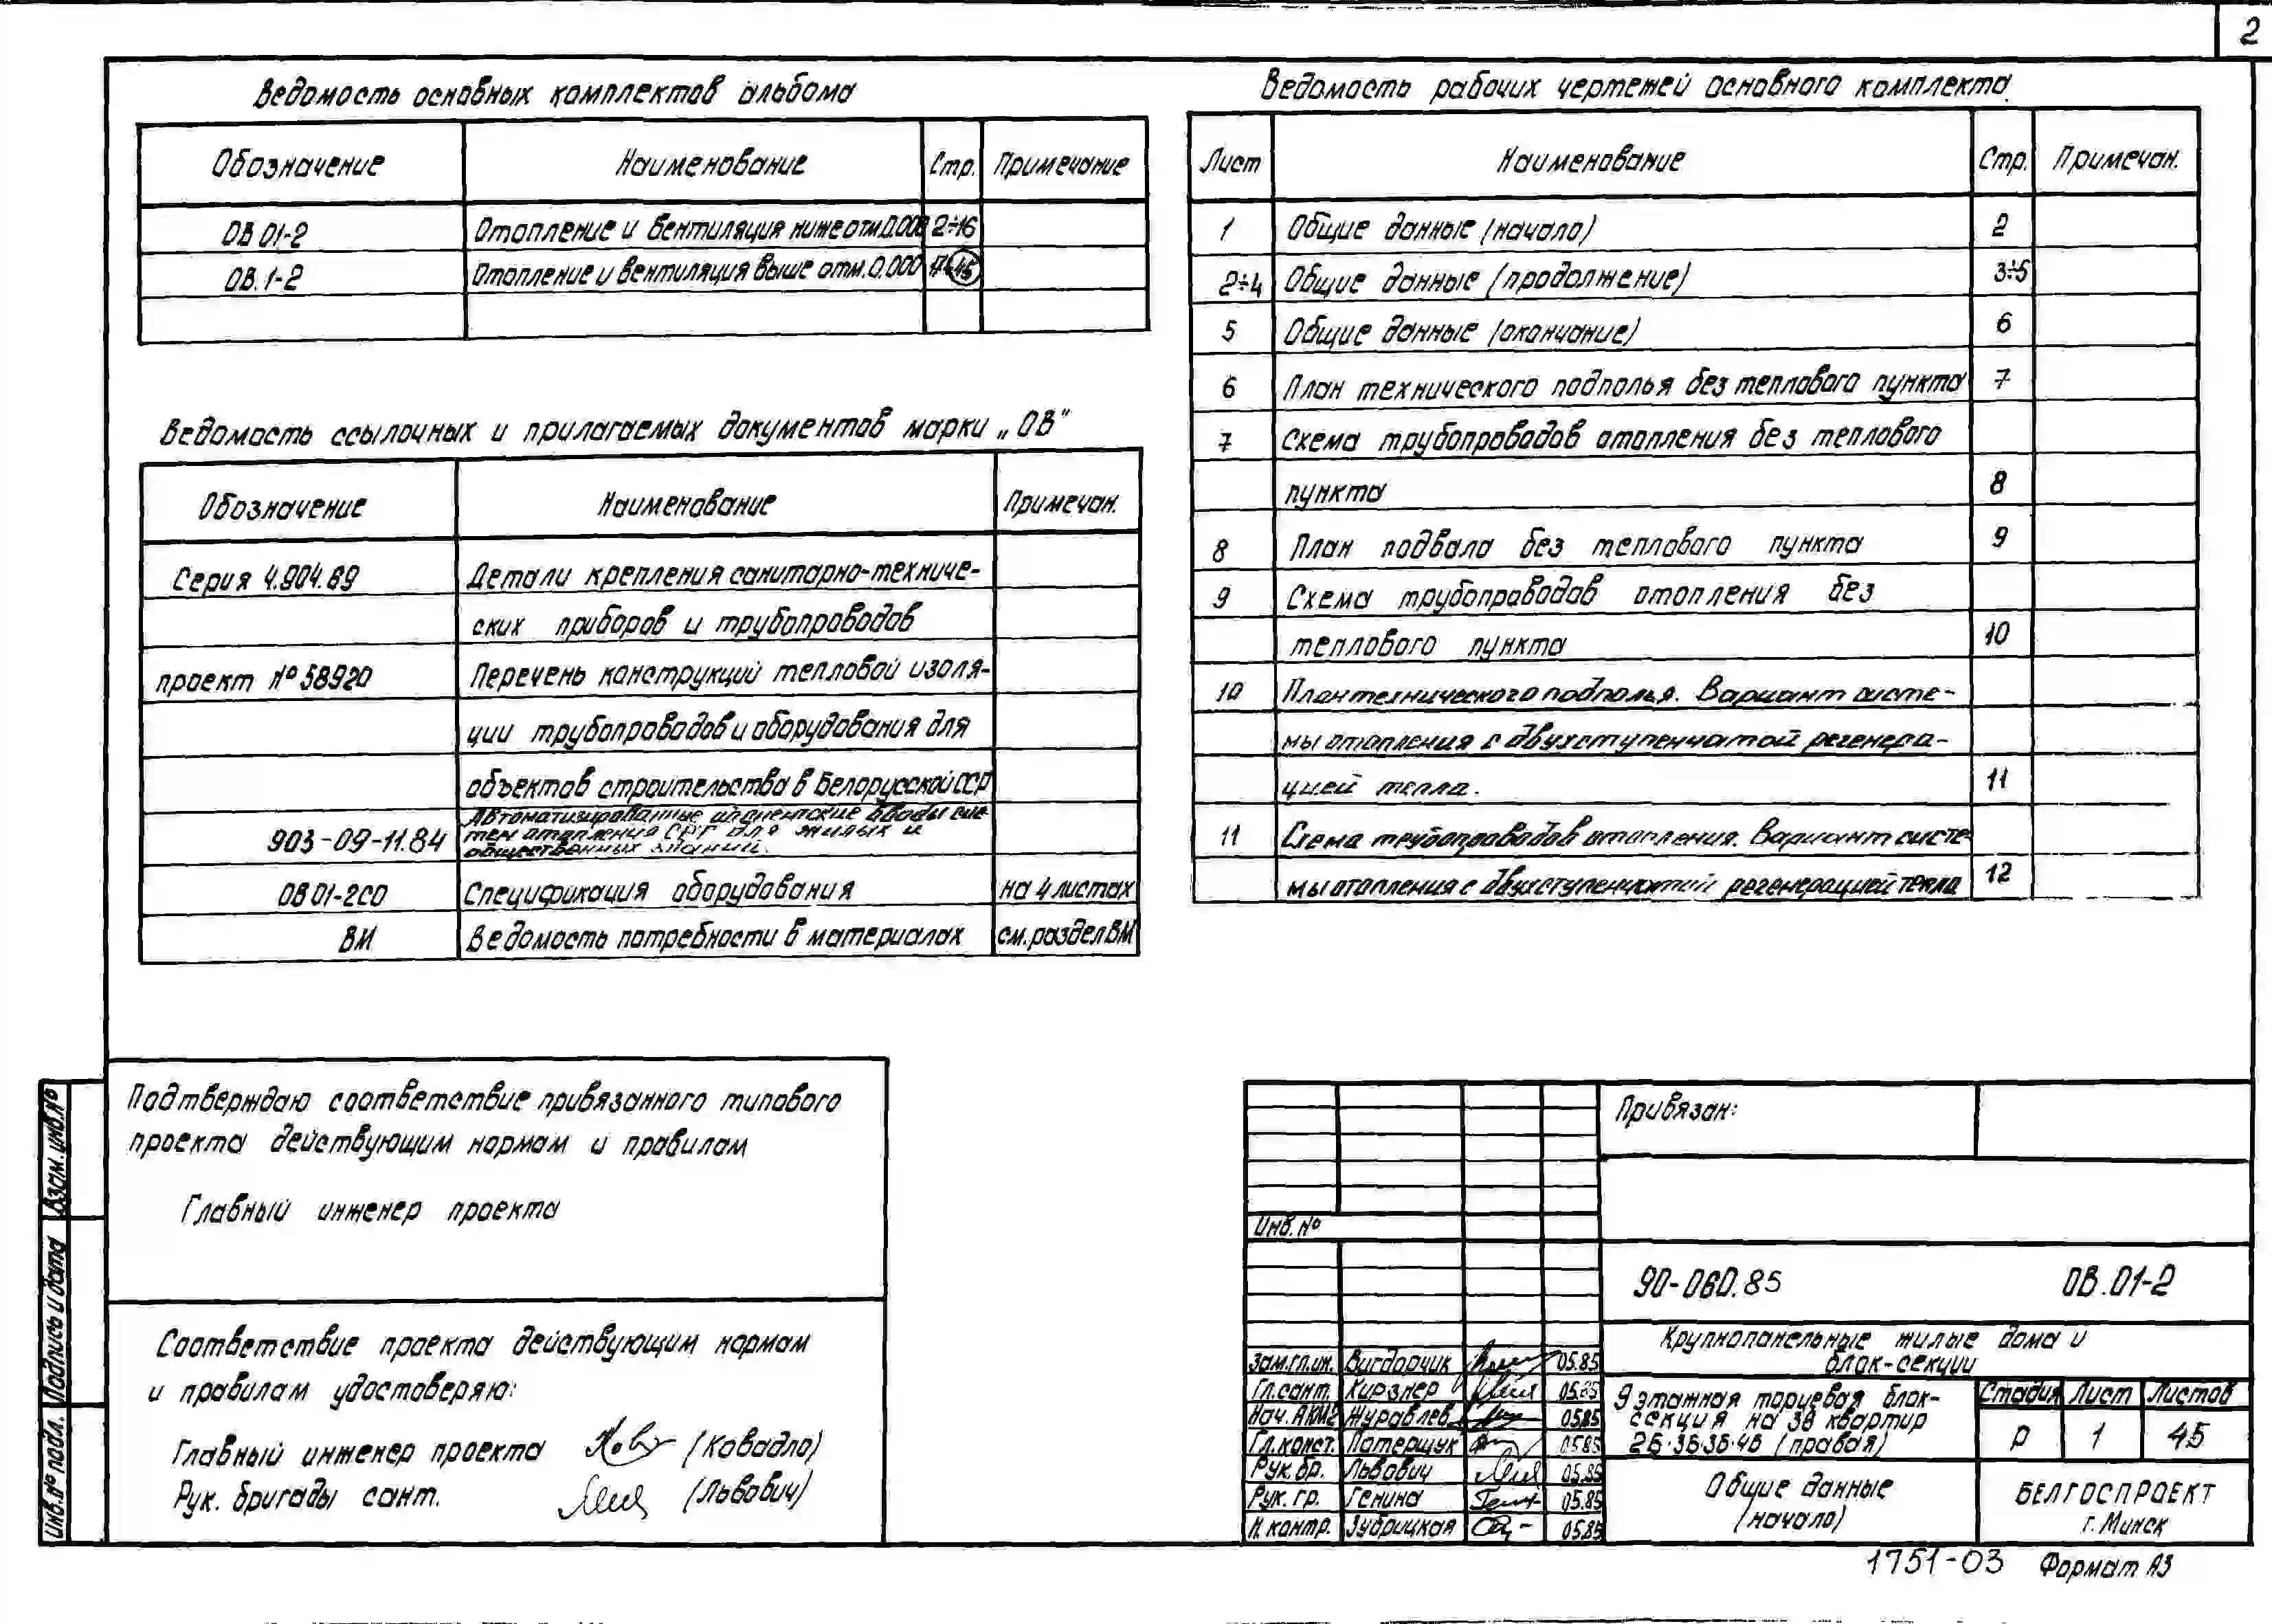 2
Ведомость основных комплектов альбома
Обозначение Наименование Стр. Примечание
ОВ 01-2 Отопление и вентиляция ниже отм.0.000 2÷16
ОВ. 1-2 Отопление и вентиляция выше отм. 0.000 17÷45
Ведомость ссылочных и прилагаемых документов марки „ОВ"
Обозначение Наименование Примечан.
Серия 4.904.69 Детали крепления санитарно-техниче-
ских приборов и трубопроводов
проект №58920 Перечень конструкций тепловой изоля-
ции трубопроводов и оборудования для
объектов строительства в Белорусской ССР
Автоматизированные абонентские вводы сис-
903-09-11.84 тем отопления для жилых и
общественных зданий.
ОВ 01-2СО Спецификация оборудования на 4 листах
ВМ Ведомость потребности в материалах см. раздел ВМ
Ведомость рабочих чертежей основного комплекта
Лист Наименование Стр. Примечан.
1 Общие данные (начало) 2
2÷4 Общие данные (продолжение) 3÷5
5 Общие данные (окончание) 6
6 План технического подполья без теплового пункта 7
7 Схема трубопроводов отопления без теплового
пункта 8
8 План подвала без теплового пункта 9
9 Схема трубопроводов отопления без
теплового пункта 10
10 План технического подполья. Вариант систе-
мы отопления с двухступенчатой регенера-
цией тепла. 11
11 Схема трубопроводов отопления. Вариант систе-
мы отопления с двухступенчатой регенерацией тепла 12
Подтверждаю соответствие привязанного типового
проекта действующим нормам и правилам
Главный инженер проекта
Соответствие проекта действующим нормам
и правилам удостоверяю:
Главный инженер проекта (Ковадло)
Рук. бригады сант. (Львович)
Взам.инв.№
Подпись и дата
Инв.№ подл.
Привязан:
Инв. №
90-060.85 ОВ.01-2
Крупнопанельные жилые дома и
блок-секции
Зам.гл.ин. Вигдорчик 05.85
Гл.сант. Кирзнер 05.85
Нач. АКМ2 Журавлев 05.85
Гл.конст. Патерщук 05.85
Рук. бр. Львович 05.85
Рук. гр. Генина 05.85
Н. контр. Зубрицкая 05.85
9 этажная торцевая блок-
секция на 36 квартир
2Б·3Б·3Б·4Б (правая)
Стадия Лист Листов
Р 1 45
Общие данные
(начало)
БЕЛГОСПРОЕКТ
г. Минск
1751-03 Формат А3